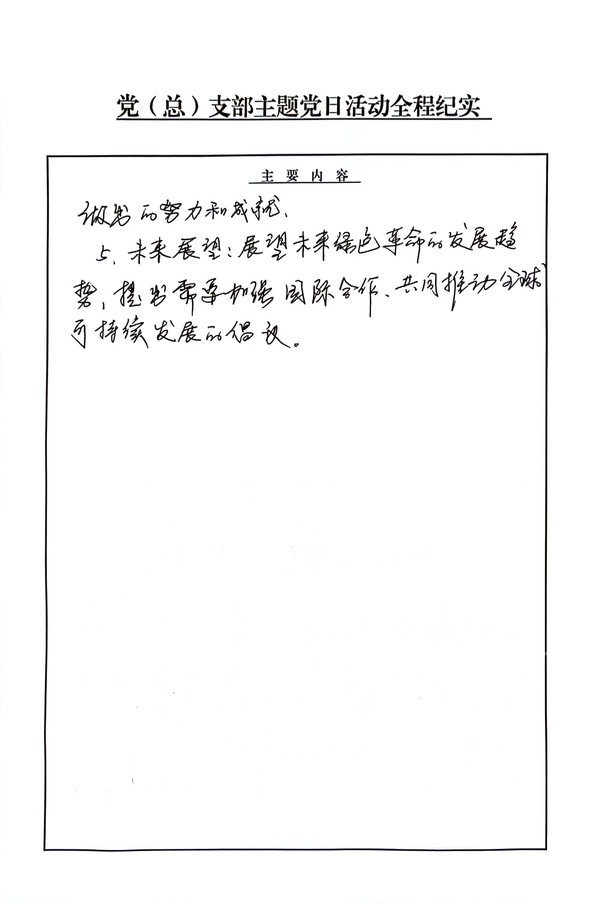 党（总）支部主题党日活动全程纪实
主要内容
做出的努力和成就、
5、未来展望：展望未来绿色革命的发展趋
势，提出需要加强国际合作、共同推动全球
可持续发展的倡议。